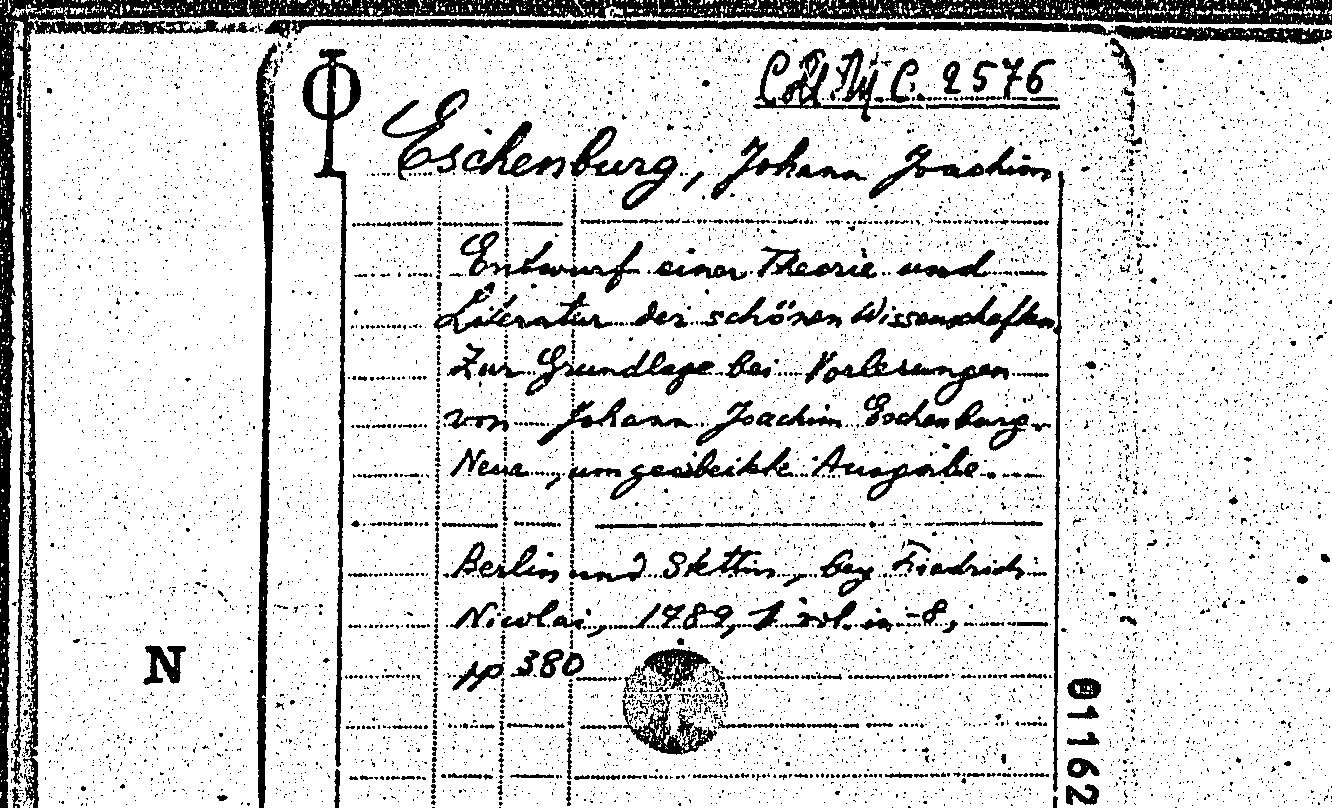 C. 2576
Eschenburg, Johann Joachim
Entwurf einer Theorie und
Literatur der schönen Wissenschaften.
Zur Grundlage bei Vorlesungen
von Johann Joachim Eschenburg.
Neue, umgearbeitete Ausgabe.
Berlin und Stettin, bey Friedrich
Nicolai, 1789, 1 vol. in-8,
pp 380
N
01162